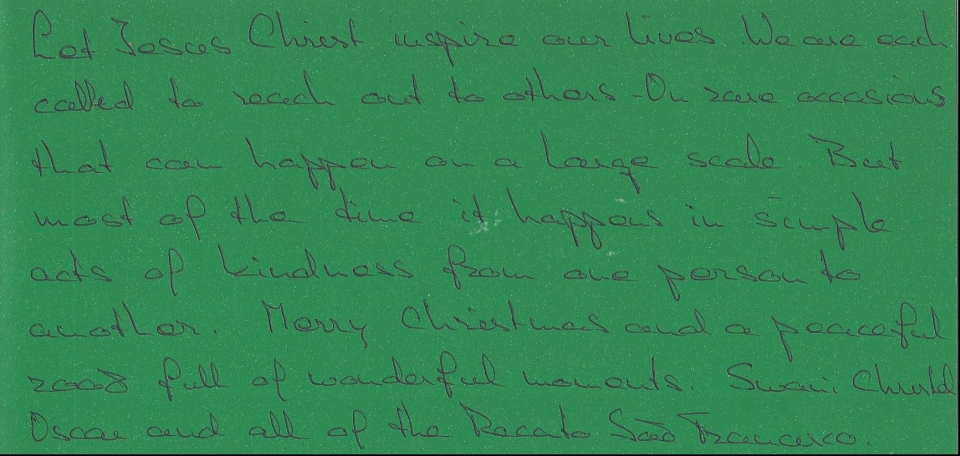 Let Jesus Christ inspire our lives. We are each
called to reach out to others. On rare occasions
that can happen on a large scale. But
most of the time it happens in simple
acts of kindness from one person to
another. Merry Christmas and a peaceful
2008 full of wonderful moments. Swami
Oscar and all of the Recanto São Francisco.